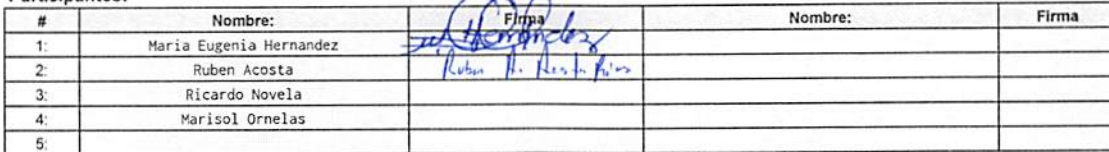 Participantes:
# Nombre: Firma Nombre: Firma
1: Maria Eugenia Hernandez Hernandez
2: Ruben Acosta Ruben A.
3: Ricardo Novela
4: Marisol Ornelas
5: